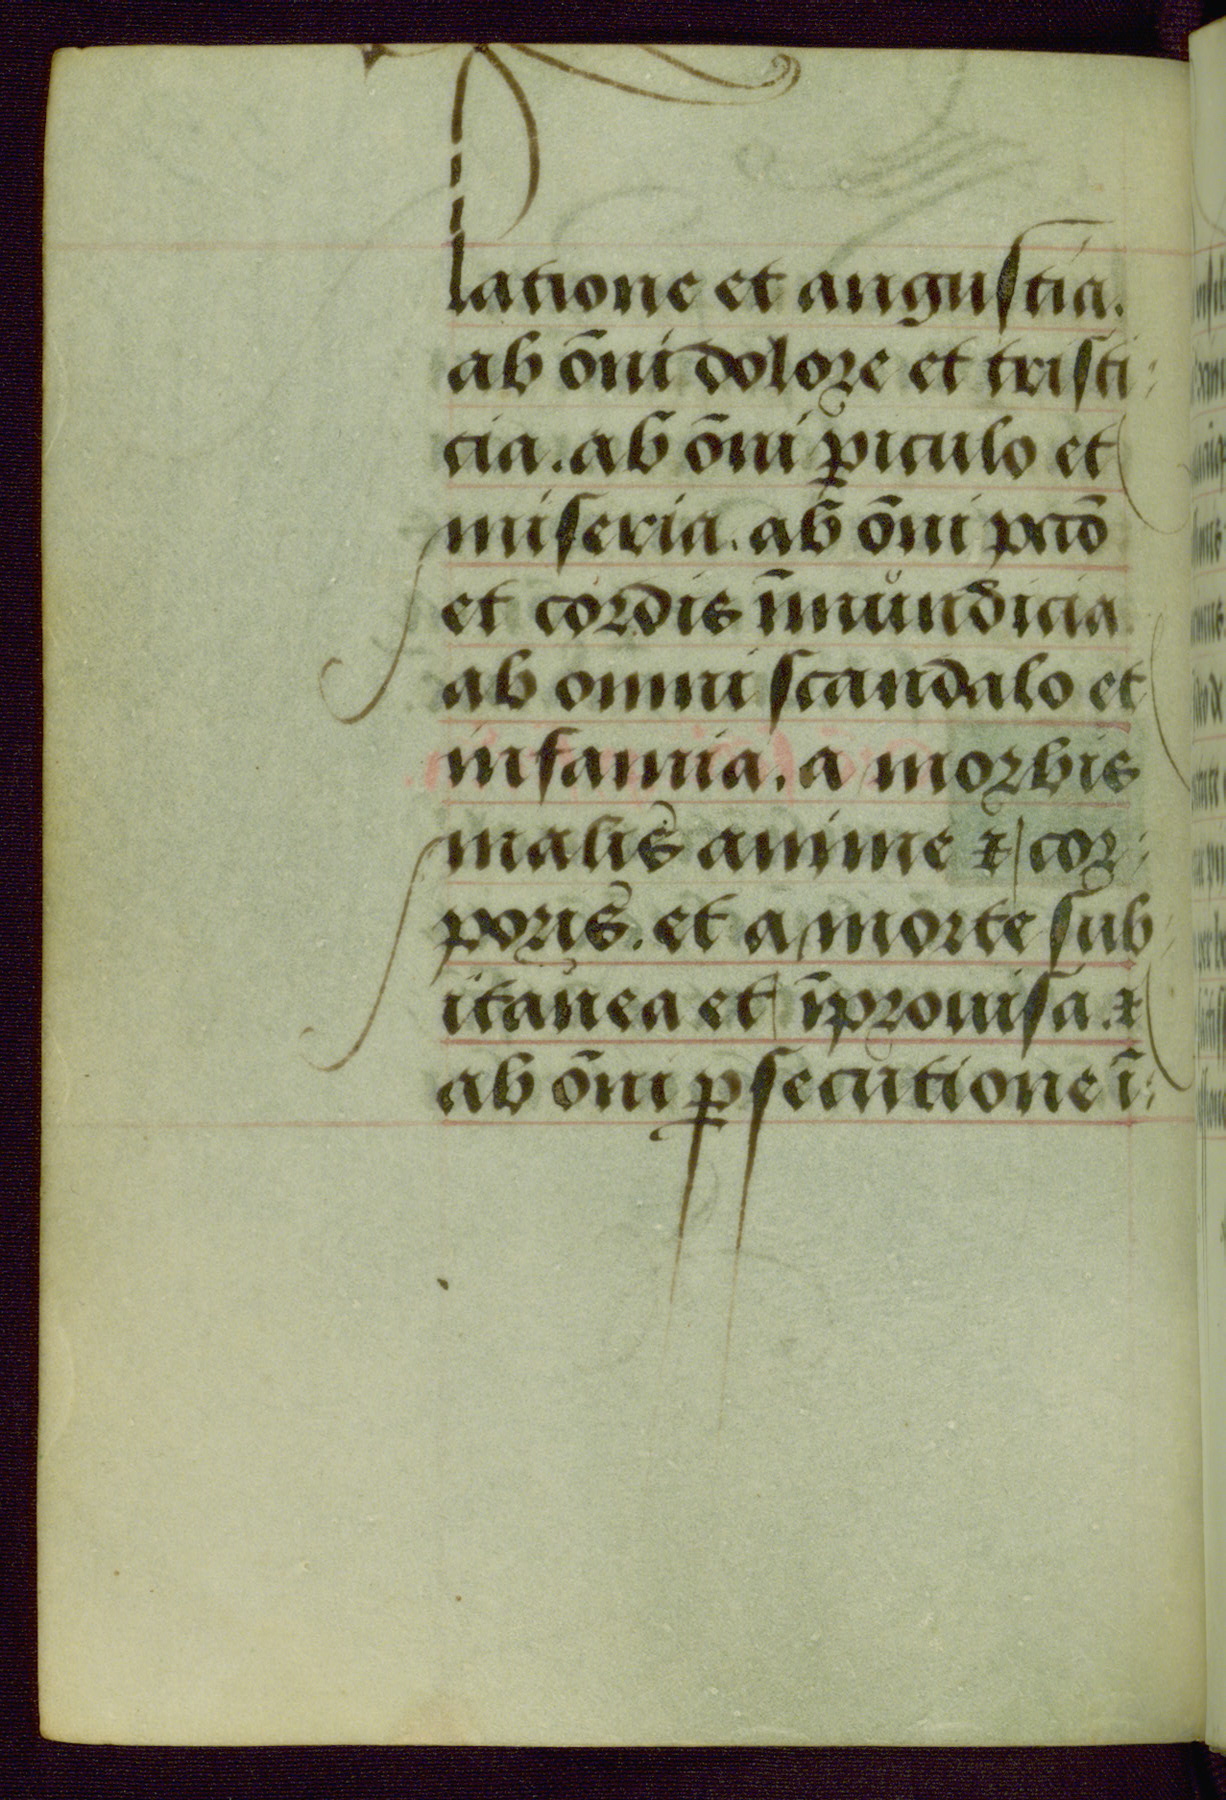 latione et angustia.
ab o̅ni dolore et tristi
cia. ab o̅ni ꝑiculo et
miseria. ab o̅ni pcc̅o
et cordis i̅mundicia
ab omni scandalo et
infamia. a morbis
malis anime ⁊ cor
poris. et a morte sub
itanea et i̅prouisa. ⁊
ab o̅ni ꝑsecutione i̅